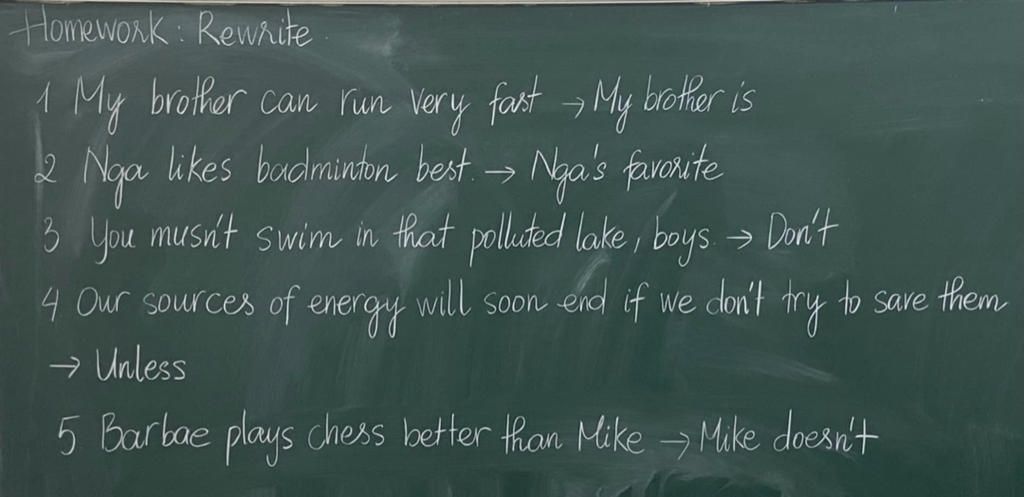 Homework: Rewrite
1 My brother can run very fast → My brother is
2 Nga likes badminton best. → Nga's favorite
3 You musn't swim in that polluted lake, boys. → Don't
4 Our sources of energy will soon end if we don't try to save them
→ Unless
5 Barbae plays chess better than Mike → Mike doesn't